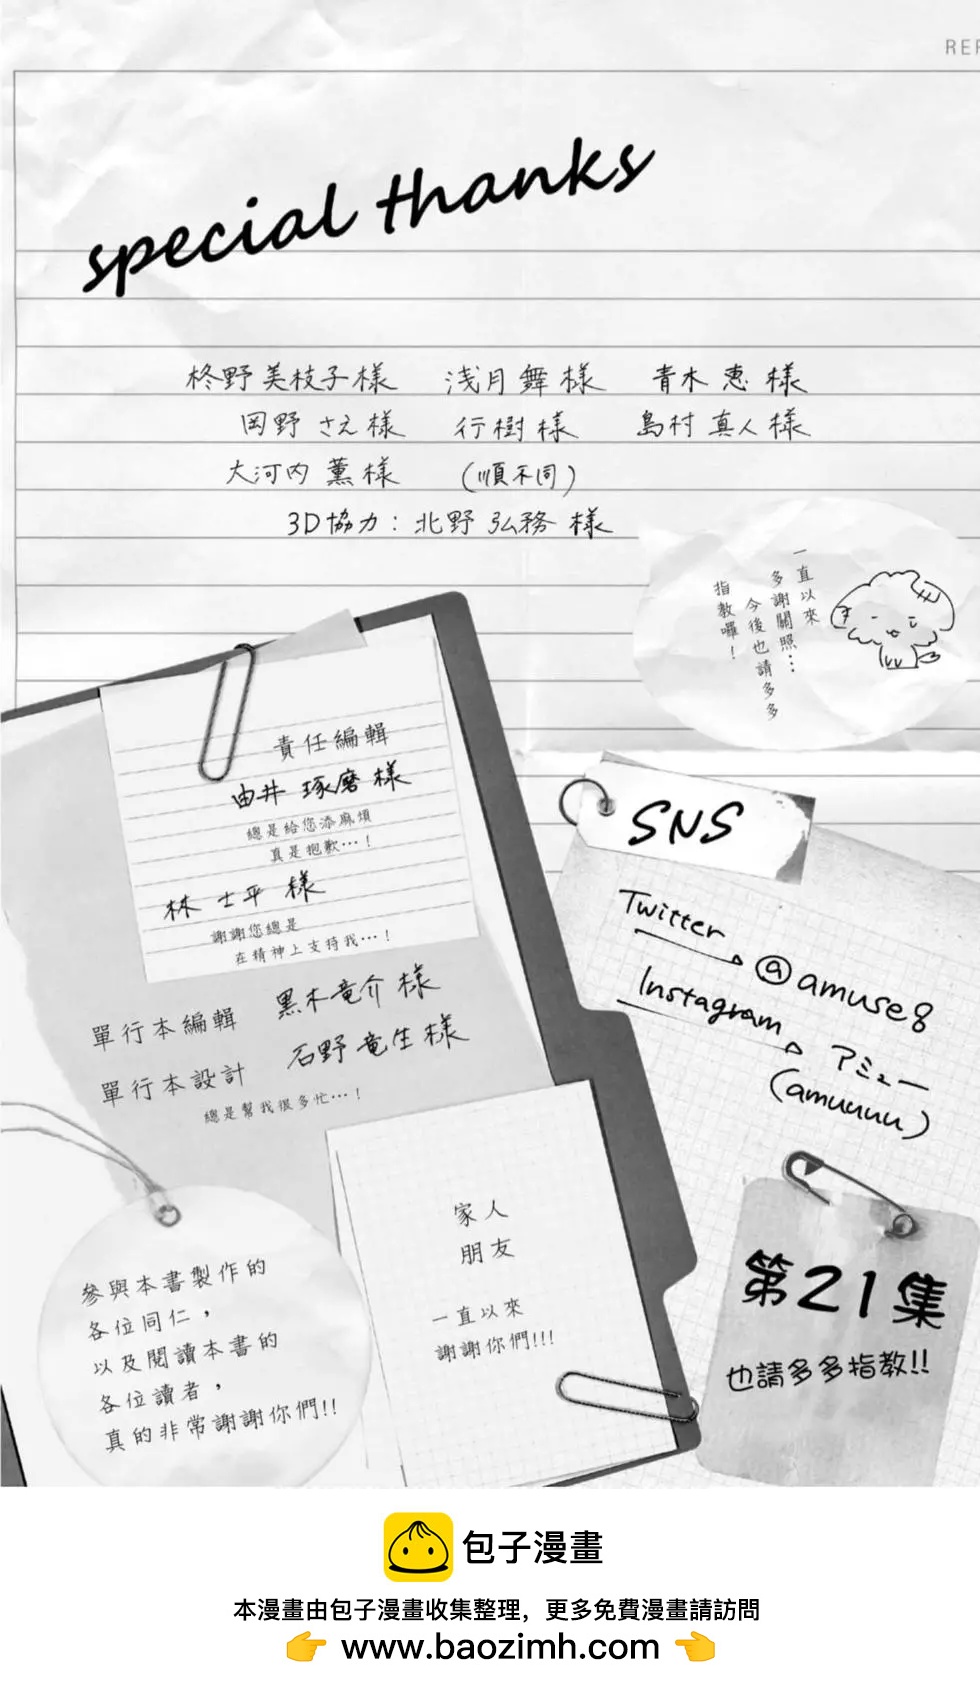 REP
special thanks
柊野美枝子様 浅月舞様 青木恵様
岡野さえ様 行樹様 島村真人様
大河内薫様 (順不同)
3D協力：北野弘務様
一直以來
多謝關照…
今後也請多多
指教囉！
責任編輯
由井琢磨様
總是給您添麻煩
真是抱歉…！
林士平様
謝謝您總是
在精神上支持我…！
單行本編輯 黒木竜介様
單行本設計 石野竜生様
總是幫我很多忙…！
SNS
Twitter
@amuse8
Instagram
アミュー
(amuuuu)
參與本書製作的
各位同仁，
以及閱讀本書的
各位讀者，
真的非常謝謝你們!!
家人
朋友
一直以來
謝謝你們!!!
第21集
也請多多指教!!
包子漫畫
本漫畫由包子漫畫收集整理，更多免費漫畫請訪問
👉 www.baozimh.com 👈